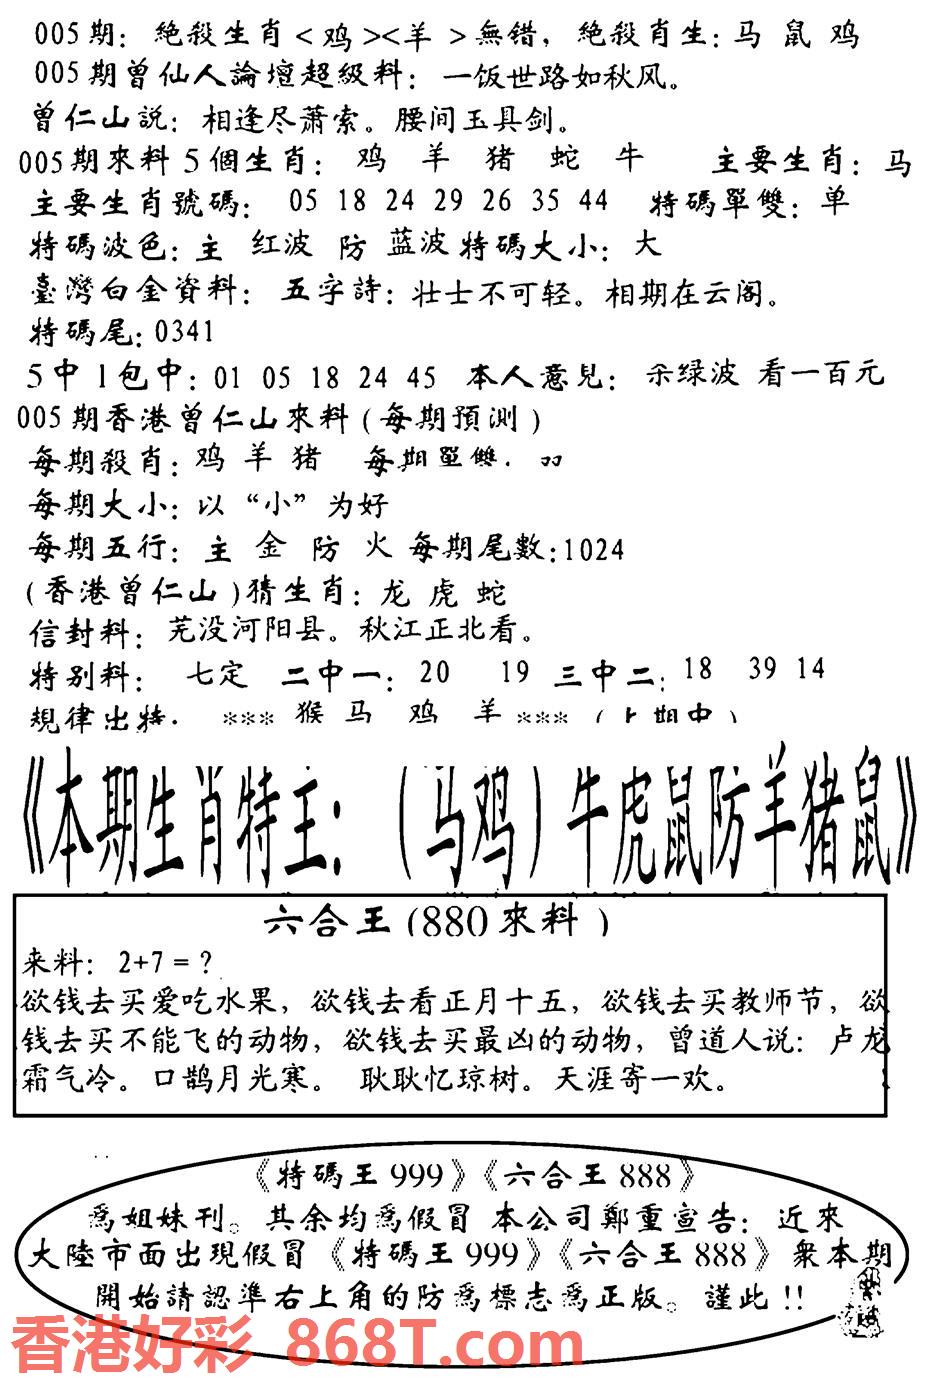 005期: 絶殺生肖<鸡><羊>無错, 絶殺肖生: 马 鼠 鸡
005期曾仙人論壇超級料: 一饭世路如秋风。
曾仁山説: 相逢尽萧索。腰间玉具剑。
005期來料5個生肖: 鸡 羊 猪 蛇 牛 主要生肖: 马
主要生肖號碼: 05 18 24 29 26 35 44 特碼單雙: 单
特碼波色: 主 红波 防 蓝波 特碼大小: 大
臺灣白金資料: 五字詩: 壮士不可轻。相期在云阁。
特碼尾: 0341
5中1包中: 01 05 18 24 45 本人意見: 买绿波 看一百元
005期香港曾仁山來料(每期預測)
每期殺肖: 鸡 羊 猪 每期單雙:
每期大小: 以“小”为好
每期五行: 主 金 防 火 每期尾數:1024
(香港曾仁山)猜生肖: 龙 虎 蛇
信封料: 芜没河阳县。秋江正北看。
特别料: 七定 二中一: 20 19 三中二: 18 39 14
規律出特: *** 猴 马 鸡 羊 *** (上期中)
《本期生肖特王: (马鸡) 牛虎鼠防羊猪鼠》
六合王(880來料)
来料: 2+7=?
欲钱去买爱吃水果, 欲钱去看正月十五, 欲钱去买教师节, 欲
钱去买不能飞的动物, 欲钱去买最凶的动物, 曾道人说: 卢龙
霜气冷。口鹊月光寒。 耿耿忆琼树。天涯寄一欢。
《特碼王999》《六合王888》
為姐妹刊。其余均為假冒 本公司鄭重宣告: 近來
大陸市面出現假冒《特碼王999》《六合王888》衆本期
開始請認準右上角的防為標志為正版。謹此!!
香港好彩 868T.com